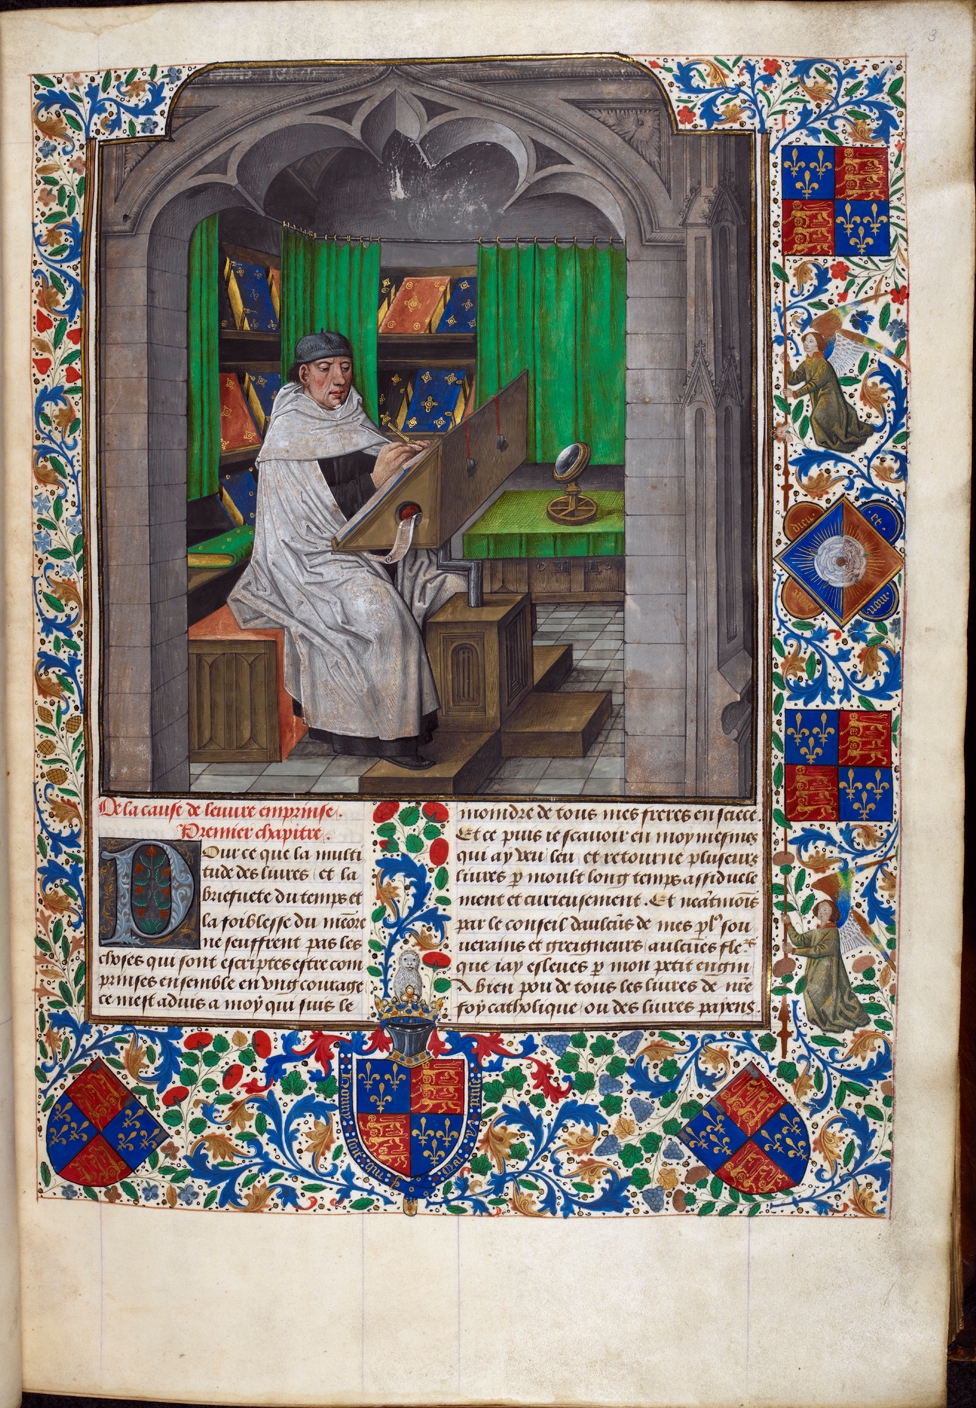 De la cause de leuure emprinse.
Premier chapitre.
Pour ce que la multi
tude des liures / et la
briefuete du temps et
la foiblesse du memoire
ne seuffrent pas les
choses qui sont escriptes estre com
prinses ensemble en vng courage
ce mest aduis a moy qui suis le
mondre de tous mes freres en facee.
Et ce puis ie scauoir en moy mesmes
qui ay veu leu / et retourne pluseurs
liures p moult long temps assiduele
ment et curieusement. Et neantmois
par le conseil daulcuns de mes pls sou
uerains et greigneurs aulcunes fle
que iay esleues p mon petit engin
A bien pou de tous les liures de nre
foy catholique / ou des liures payens
dieu et mon
honny soit qui mal y pense
3